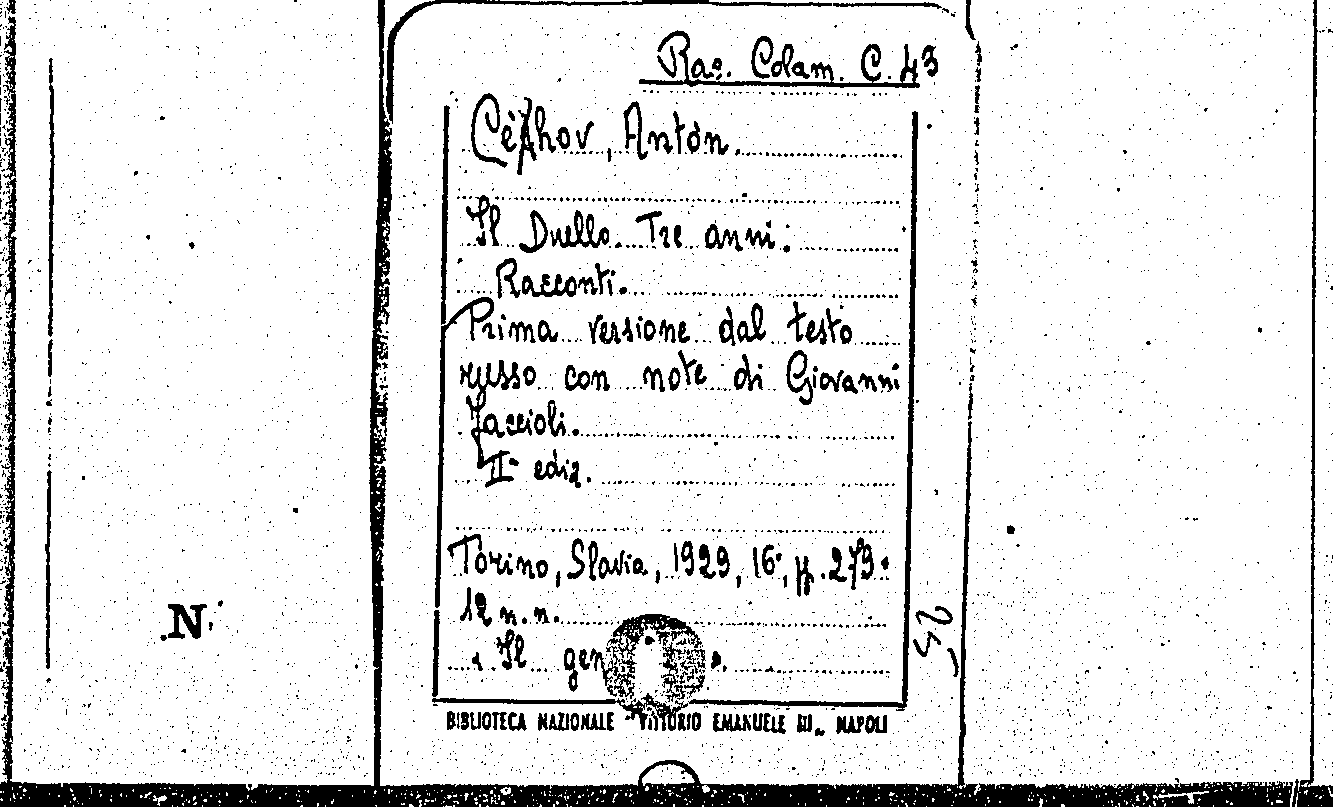 Rac. Colam. C. 43
Céchov, Anton.
Il Duello. Tre anni.
Racconti.
Prima versione dal testo
russo con note di Giovanni
Faccioli.
IIª ediz.
Torino, Slavia, 1929, 16°, pp. 279.
12 n. n.
Il
BIBLIOTECA NAZIONALE "VITTORIO EMANUELE III" NAPOLI
N